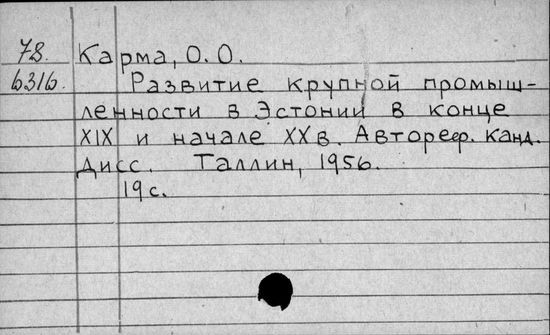 78. Карма, О. О.
6316. Развитие крупной промыш-
ленности в Эстонии в конце
XIX и начале XX в. Автореф. канд.
дисс. Таллин, 1956.
19 с.